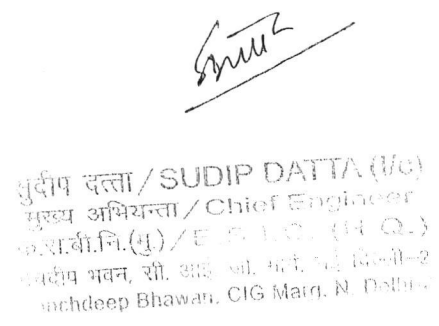 सुदीप दत्ता / SUDIP DATTA (I/c)
मुख्य अभियन्ता / Chief Engineer
क.रा.बी.नि.(मु.) / E.S.I.C. (H.Q.)
दीप भवन, सी. आई. जी. मार्ग, नई दिल्ली-2
nchdeep Bhawan, CIG Marg, N. Delhi-2